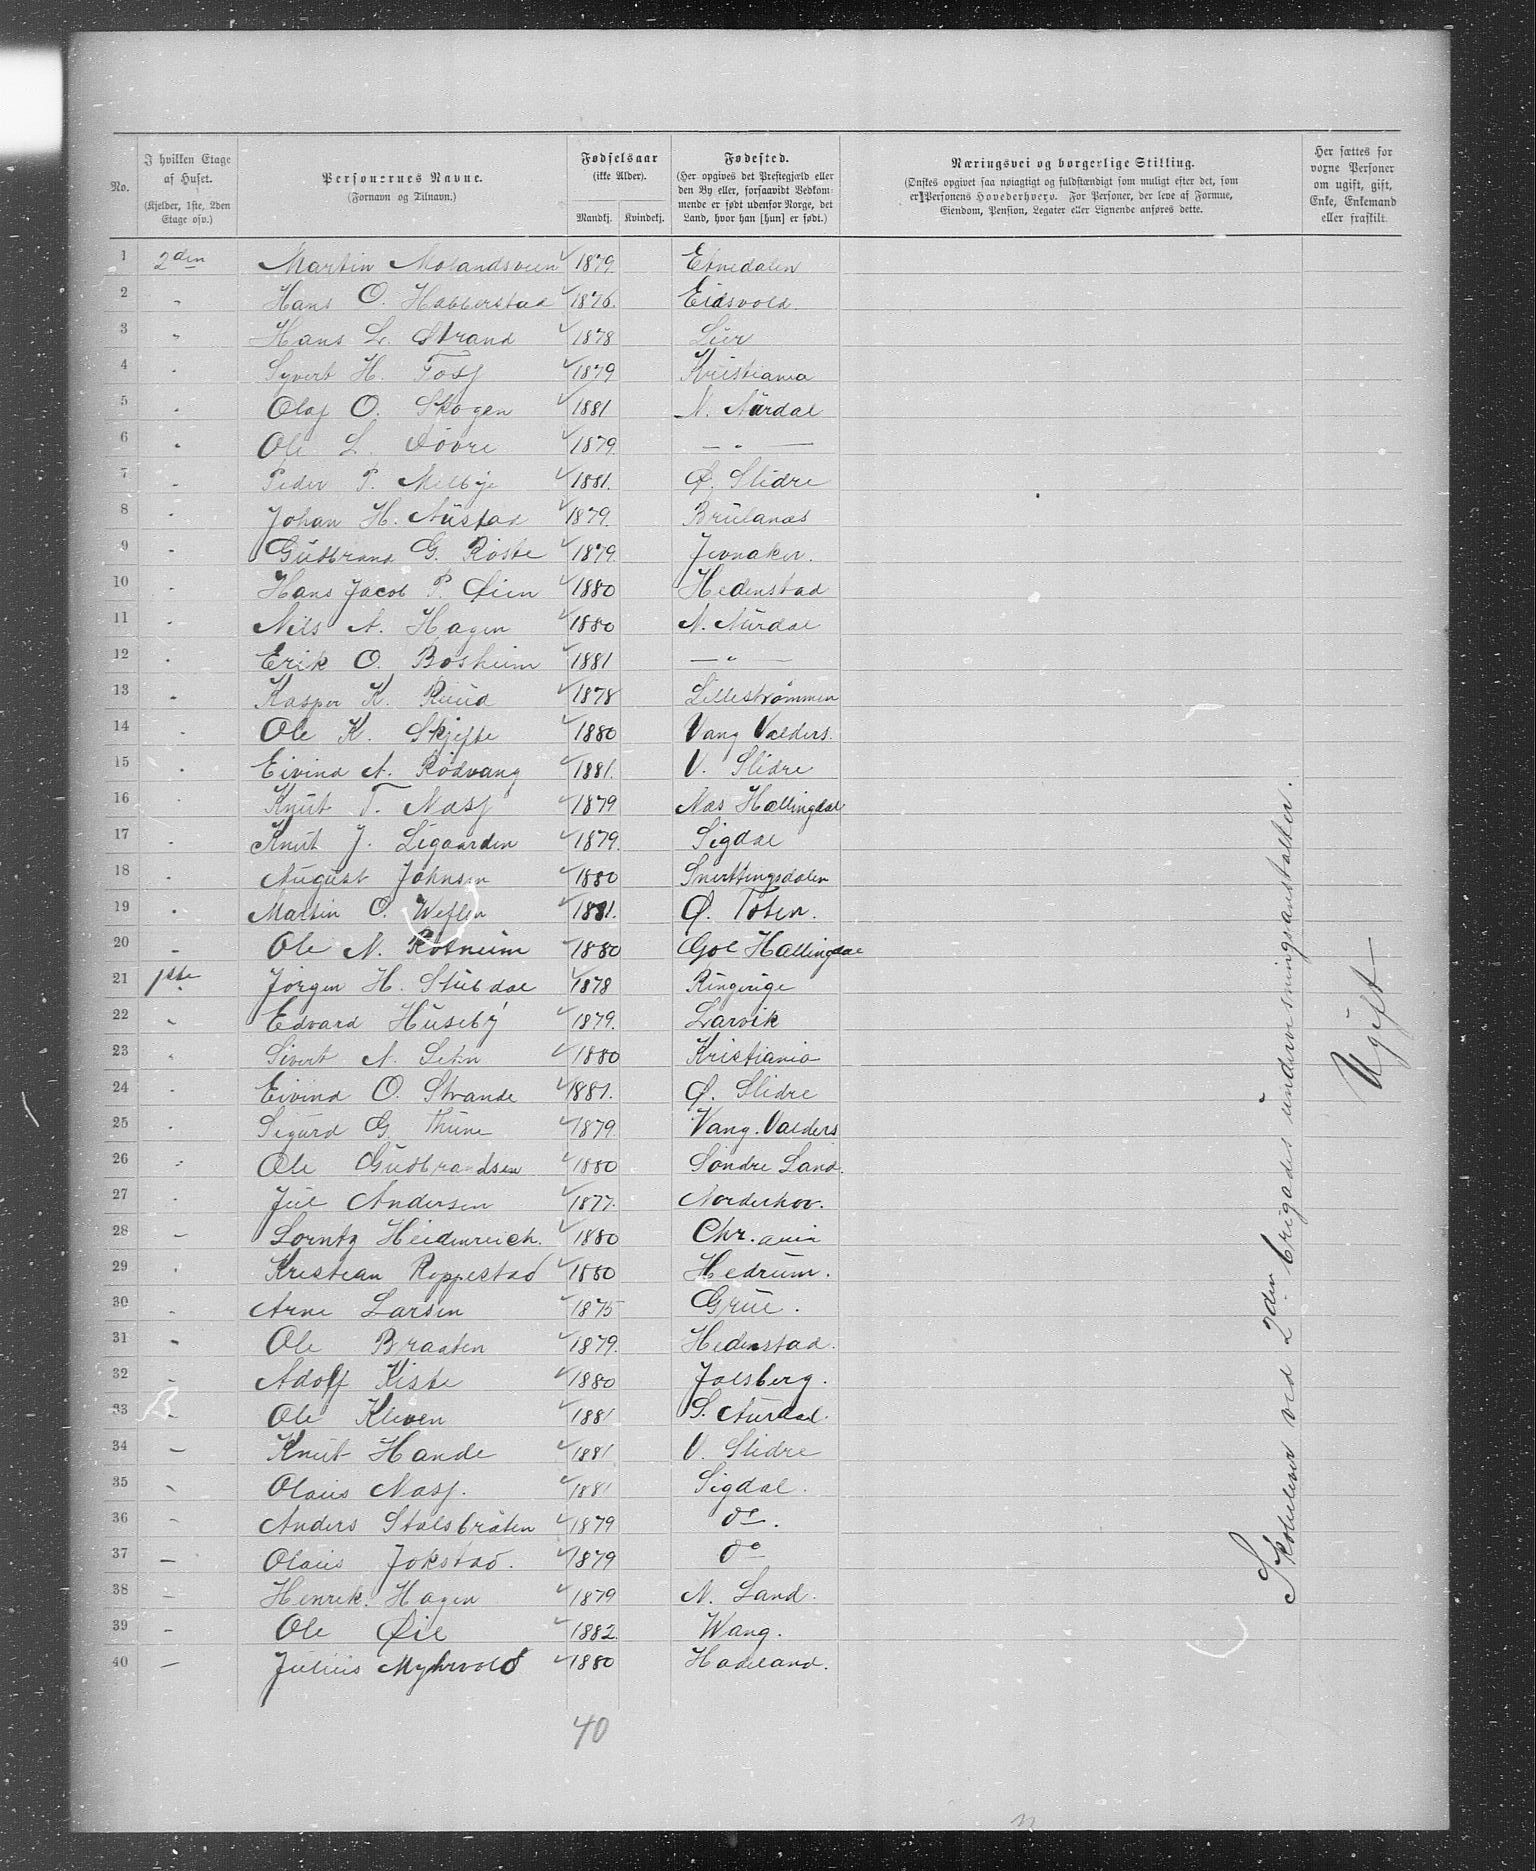 No.
I hvilken Etage af Huset.
(Kjelder, 1ste, 2den Etage osv.)
Personernes Navne.
(Fornavn og Tilnavn).
Fødselsaar
(ikke Alder).
Mandkj. Kvindekj.
Fødested.
(Her opgives det Prestegjæld eller den By eller, forsaavidt Vedkommende er født udenfor Norge, det Land, hvor han [hun] er født.)
Næringsvei og borgerlige Stilling.
(Ønskes opgivet saa nøiagtigt og fuldstændigt som muligt efter det, som er Personens Hovederhverv. For Personer, der leve af Formue, Eiendom, Pension, Legater eller Lignende anføres dette.
Her sættes for voxne Personer om ugift, gift, Enke, Enkemand eller fraskilt.
1 2den Martin Molandsveen 1879 Etnedalen
2 " Hans O. Habberstad 1876. Eidsvold.
3 " Hans L. Strand 1878 Lier
4 " Syvert H. Fosf 1879 Kristiania
5 " Olaf O. Skogen 1881 N. Aurdal
6 " Ole L. Døvre 1879. — " —
7 " Peder P. Melbye 1881. Ø. Slidre
8 " Johan H. Austad 1879. Brulanæs
9 " Gudbrand G. Røste 1879. Jevnaker.
10 " Hans Jacob P. Øien 1880 Hedenstad
11 " Nils A. Hagen 1880 N. Aurdal
12 " Erik O. Bosheim 1881 — " —
13 " Kasper K. Ruud 1878 Lillestrømmen
14 " Ole K. Skjefte 1880 Vang Valders.
15 " Eivind A. Rødvang 1881. V. Slidre
16 " Knut T. Næsf 1879 Næs Hallingdal
17 " Knut J. Ligaarden 1879. Sigdal
18 " August Johnsen 1880 Snertingsdalen
19 " Martin O. Weflen 1881. Ø. Toten.
20 " Ole N. Rotneim 1880 Gol Hallingdal
21 1ste Jørgen H. Stubdal 1878 Ringerige
22 " Edvard Huseby 1879. Larvik
23 " Sivert N. Sehn 1880 Kristiania
24 " Eivind O. Strande 1881. Ø. Slidre
25 " Sigurd G. Thune 1879. Vang. Valders
26 " Ole Gudbrandsen 1880 Søndre Land.
27 " Jul Andersen 1877. Norderhov.
28 " Lorntz Heidenreich. 1880 Chr.ania
29 " Kristian Roppestad 1880 Hedrum.
30 " Arne Larsen 1875 Grue.
31 " Ole Braaten 1879. Hedenstad.
32 " Adolf Kiste 1880 Jalsberg.
33 " Ole Kleven 1881 S. Aurdal.
34 " Knut Hande 1881 V. Slidre
35 " Olaus Næsf. 1881 Sigdal.
36 " Anders Stalsbråten 1879 do.
37 " Olaus Jokstad. 1879 do
38 " Henrik. Hagen 1879 N. Land.
39 " Ole Øie 1882. Wang.
40 " Julius Myhrvold 1880 Hadeland.
Skoleelever ved 2den brigades underofficersanstalten.
Ugift —
40